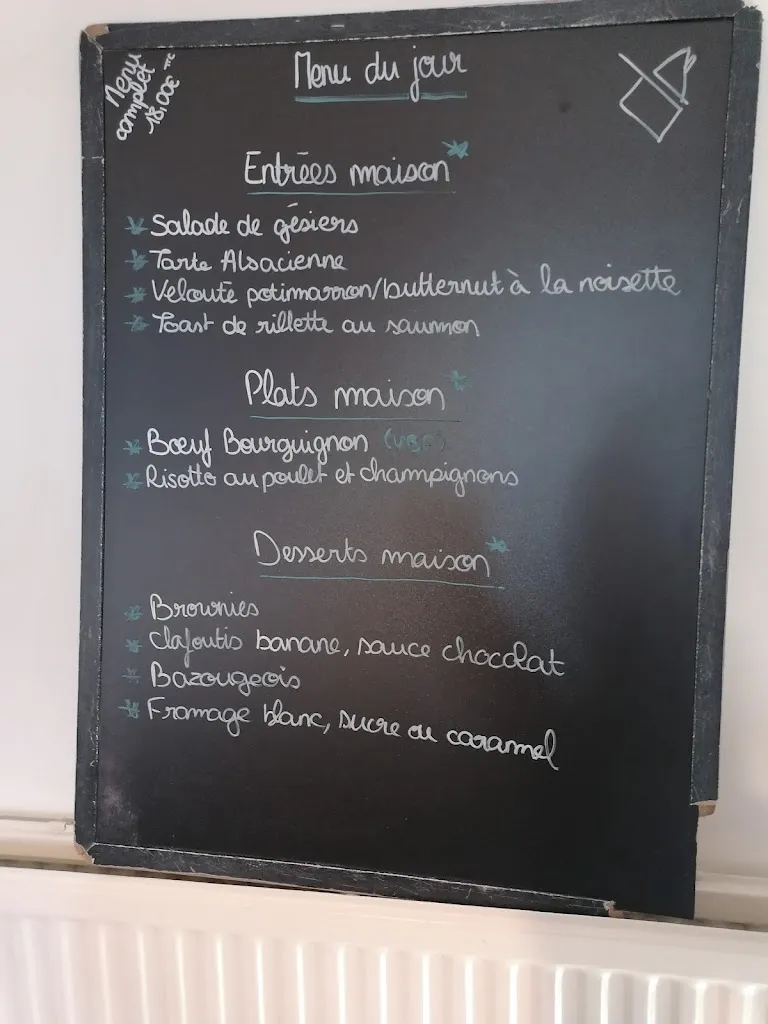 Menu complet 18,00€ TTC
Menu du jour
Entrées maison
Salade de gésiers
Tarte Alsacienne
Velouté potimarron/butternut à la noisette
Toast de rillette au saumon
Plats maison
Bœuf Bourguignon (VBF)
Risotto au poulet et champignons
Desserts maison
Brownies
Clafoutis banane, sauce chocolat
Bazougeois
Fromage blanc, sucre ou caramel